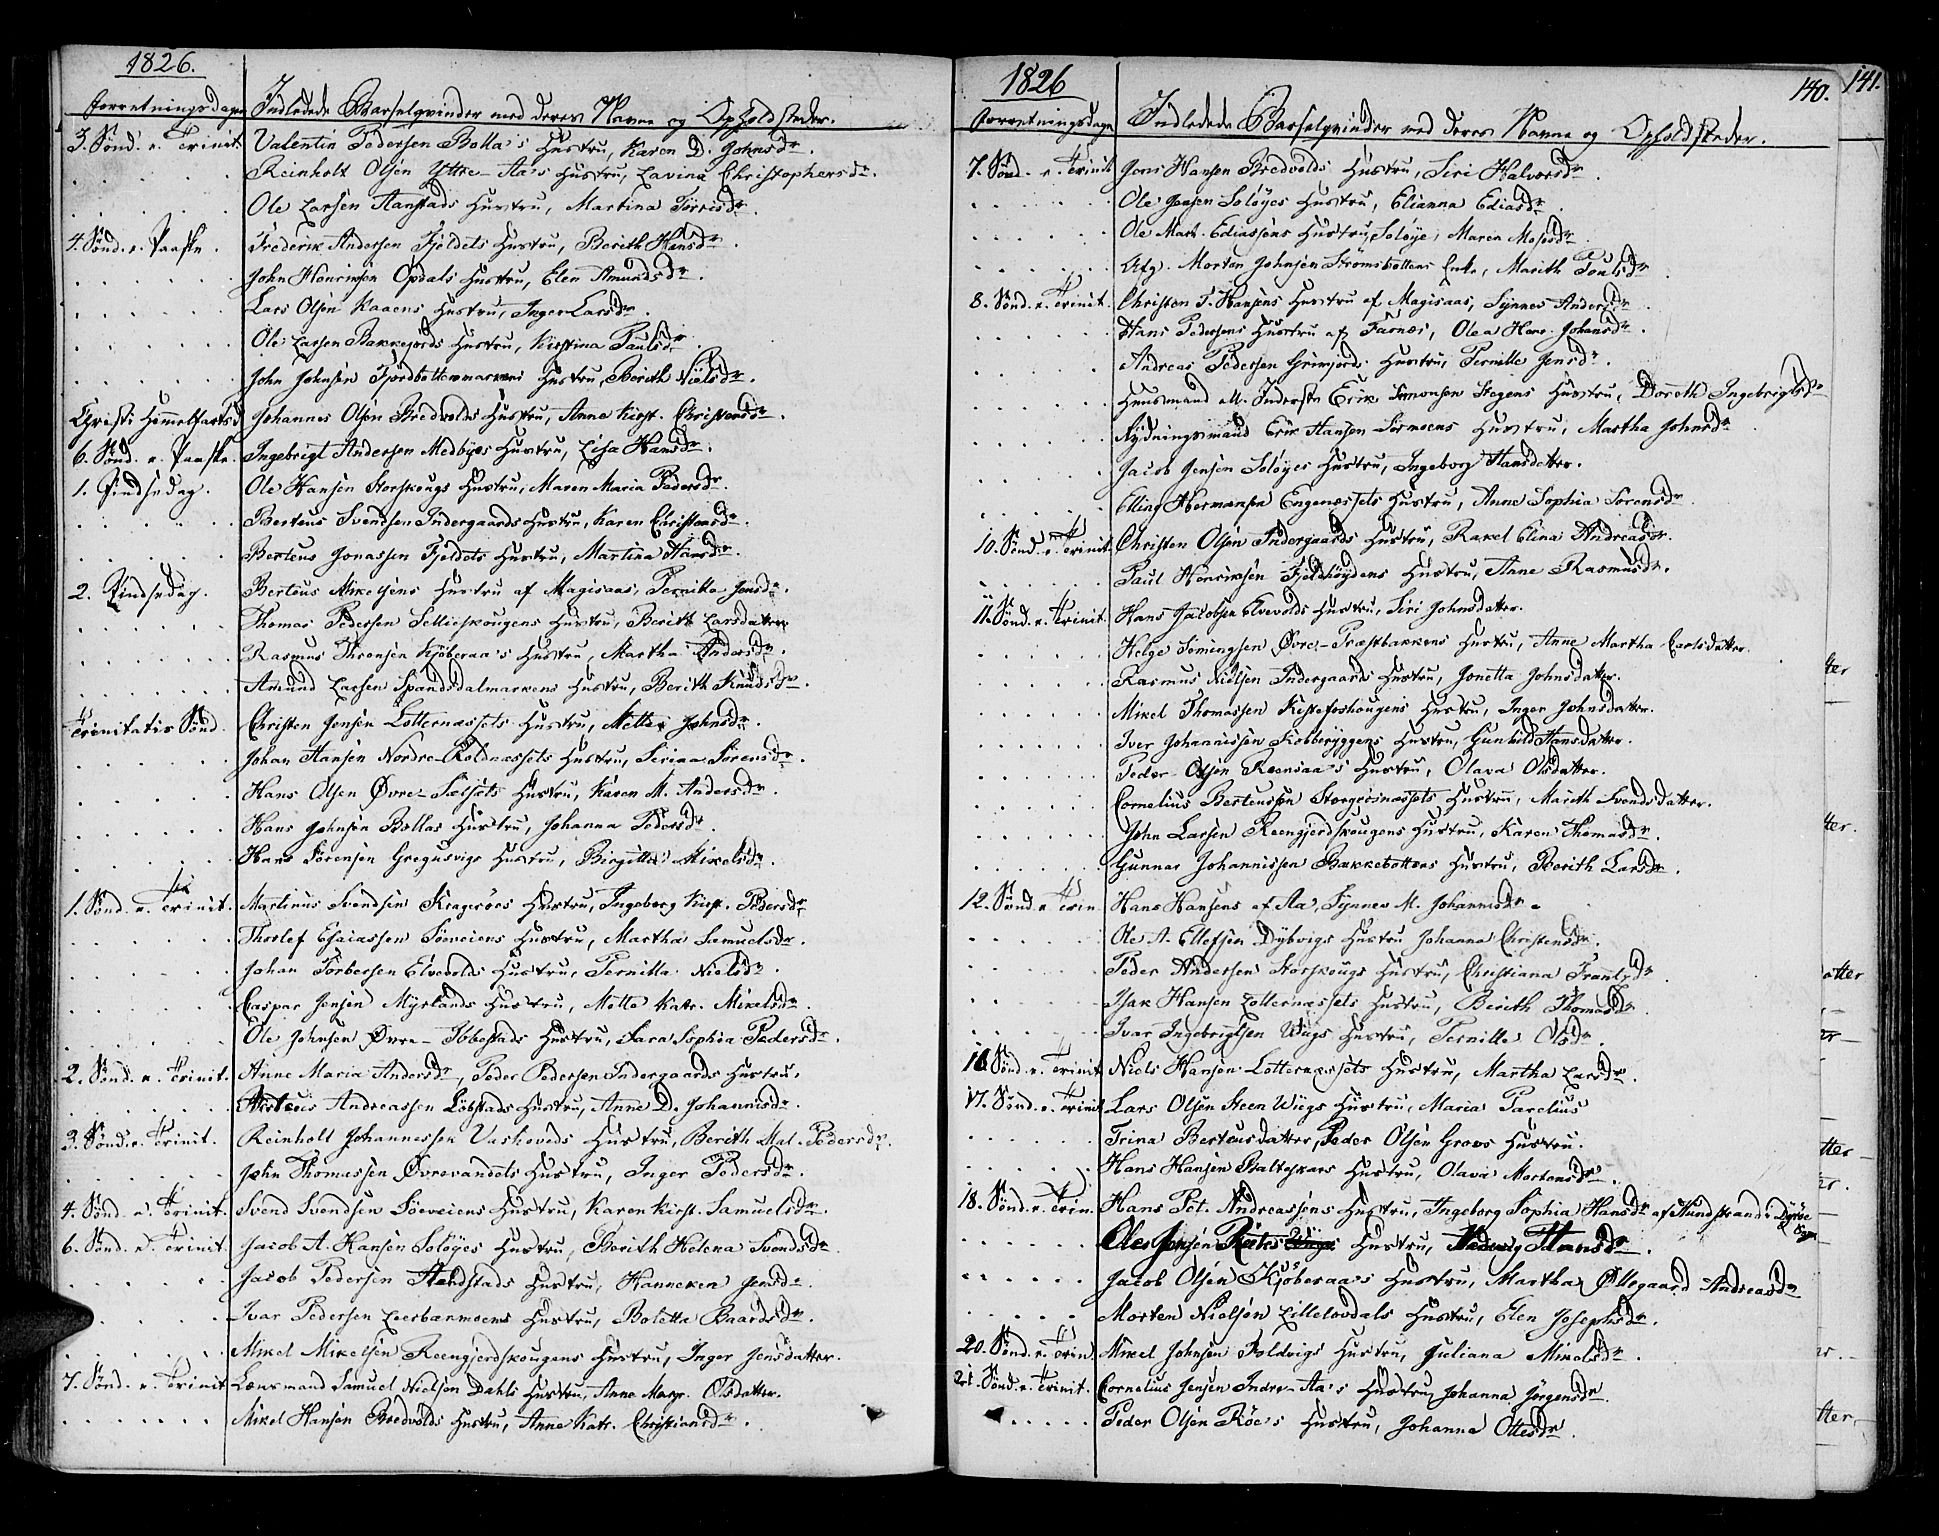 1826.
Forretningsdagen Indledede Barselqvinder med deres Navne og Opholdsteder.
3. Sønd. e. Trinit. Valentin Pedersen Bolla's Hustru, Karen D. Johnsdr.
Reinholt Olsen Yttre-Aa's Hustru, Lavina Christophersdr.
Ole Larsen Aanstads Hustru, Martina Torrisdr.
4. Sønd. e. Paaske. Frederik Andersen Fjeldets Hustru, Berith Hansdr.
John Henriksen Opdals Hustru, Elen Amundsdr.
Lars Olsen Kaaens Hustru, Inger Larsdr.
Ole Larsen Bakkejords Hustru, Kirstina Paulsdr.
John Johnsen Fjordbottenmarkens Hustru, Berith Nielsdr.
Christi Himmelfartsd. Johannes Olsen Bredvolds Hustru, Anne Kirst. Christensdr.
6. Sønd. e. Paaske. Ingebrigt Andersen Medbyes Hustru, Lisa Hansdr.
1. Pindsedag. Ole Hansen Storskougs Hustru, Maren Maria Pedersdr.
Berteus Svendsen Indergaards Hustru, Karen Christensdr.
Berteus Jonassen Fjeldets Hustru, Martina Hansdr.
2. Pindsedag. Berteus Mikelsens Hustru af Magisaas, Pernilla Jensdr.
Thomas Pedersen Selliskougens Hustru, Berith Larsdatter
Rasmus Thronsen Kjøberaa's Hustru, Martha Andersdr.
Amund Larsen Spandsdalmarkens Hustru, Berith Knudsdr.
Trinitatis Sønd. Christen Jensen Lotternæssets Hustru, Mette Johnsdr.
Johan Hansen Nordre-Roldnæssets Hustru, Serina Sørensdr.
Hans Olsen Øvre-Sætsets Hustru, Karen M. Andersdr.
Hans Johnsen Bollas Hustru, Johanna Pedersdr.
Hans Sørensen Gregusvigs Hustru, Birgitte Mikelsdr.
1. Sønd. e. Trinit. Martinus Svendsen Kragrøes Hustru, Ingeborg Kirst. Pedersdr.
Thorlef Esaiassen Søeveiens Hustru, Martha Samuelsdr.
Johan Torbersen Elvevolds Hustru, Pernilla Nielsdr.
Caspar Jensen Myrlands Hustru, Mette Katr. Mikelsdr.
Ole Johnsen Øvre-Ibbestads Hustru, Sara Sophia Pedersdr.
2. Sønd. e. Trinit. Anne Maria Andersdr, Peder Pedersen Indergaards Hustru.
Andreassen Løbstads Hustru, Anne D. Johannisdr.
3. Sønd. e. Trinit. Reinholt Johannessen Vaskoveds Hustru, Berith Mal. Pedersdr.
John Thomassen Øvrevandets Hustru, Inger Pedersdr.
4. Sønd. e. Trinit. Svend Svendsen Søeveiens Hustru, Karen Kirst. Samuelsdr.
6. Sønd. e. Trinit. Jacob A. Hansen Soløyes Hustru, Berith Helena Svendsdr.
Jacob Pedersen Hustru, Hanneken Jensdr.
Ivar Pedersen Leerbæmoens Hustru, Boletta Baardsdr.
Mikel Mikelsen Reengjerdskougens Hustru, Inger Jensdatter.
7. Sønd. e. Trinit. Lænsmand Samuel Nielsen Dahls Hustru, Anne Marg. Olsdatter.
Mikel Hansen Bredvolds Hustru, Anne Katr. Christiansdr.
1826 140. 141.
Forretningsdage Indledede Barselqvinder med deres Navne og Opholdsteder.
7. Sønd. e. Trinit. Jens Hansen Bredvolds Hustru, Siri Halvorsdr.
Ole Jensen Soløyes Hustru, Elianna Ediasdr.
Ole Mart. Ediassens Hustru, Soløye, Maren Mosesdr.
Afg. Morten Johnsen Strømsbottens Enke, Marith Poulsdr.
8. Sønd. e. Trinit. Christen P. Hansens Hustru af Magisaas, Synnev Andersdr.
Hans Pedersens Hustru af Furnes, Olea Hans Johansdr.
Andreas Pedersen Grimsjords Hustru, Pernille Jensdr.
Huusmand ell. Inderste Erik Simonsen Stegens Hustru, Doreth Ingebrigtsdr.
Rydningsmand Erik Hansen Sørmoens Hustru, Martha Johnsdr.
Jacob Jensen Soløyes Hustru, Ingeborg Hansdatter.
Elling Hermansen Engenæssets Hustru, Anne Sophia Sørensdr.
10. Sønd. e. Trinit. Christen Olsen Indergaards Hustru, Rakel Elina Andreasdr.
Paul Henriksen Fjeldhøydens Hustru, Anne Rasmusdr.
11. Sønd. e. Trinit. Hans Jacobsen Elvevolds Hustru, Siri Johnsdatter.
Helge Simingsen Øvre-Præstbakkens Hustru, Anne Martha Carlsdatter.
Rasmus Nielsen Indergaards Hustru, Jonetta Johnsdatter.
Mikel Thomassen Kistefoshougens Hustru, Inger Johnsdatter.
Iver Johannissen Kobberyggens Hustru, Gunhild Hansdatter.
Peder Olsen Reensaa's Hustru, Olava Olsdatter.
Cornelius Berteussen Storgeisnæssets Hustru, Marith Svendsdatter.
John Larsen Reengjerdskougens Hustru, Karen Thomasdr.
Gunnar Johannissen Bakkebottens Hustru, Berith Larsdr.
12. Sønd. e. Trin. Hans Hansens af Aa, Synnev M. Johannisdr.
Ole A. Ellefsen Dybvigs Hustru Johanna Christensdr.
Peder Andersen Storskougs Hustru, Christiana Frantzdr.
Isak Hansen Lotternæssets Hustru, Berith Thomasdr.
Ivar Ingebrigtsen Wiigs Hustru, Pernille Olsdr.
16. Sønd. e. Trinit. Niels Hansen Lotternæssets Hustru, Martha Larsdr.
17. Sønd. e. Trinit. Lars Olsen Steen Wiigs Hustru, Maria Parelius
Trina Berteusdatter, Peder Olsen Grovs Hustru.
Hans Hansen Balteskars Hustru, Olava Mortensdr.
18. Sønd. e. Trin. Hans Pet. Andreassens Hustru, Ingeborg Sophia Hansdr. af Kundstrand i Dyrøe
Ole Jensen Hustru, Hansdr.
Jacob Olsen Kjøberaa's Hustru, Martha Øllegaard Andreasdr
Morten Nielsen Lillelovdals Hustru, Elen Josephsdr.
20. Sønd. e. Trin. Mikel Johnsen Foldvigs Hustru, Juliana Mikelsdr.
21. Sønd. e. Trinit. Cornelius Jensen Indre-Aa's Hustru Johanna Jørgensdr.
Peder Olsen Røe's Hustru, Johanna Ottesdr.